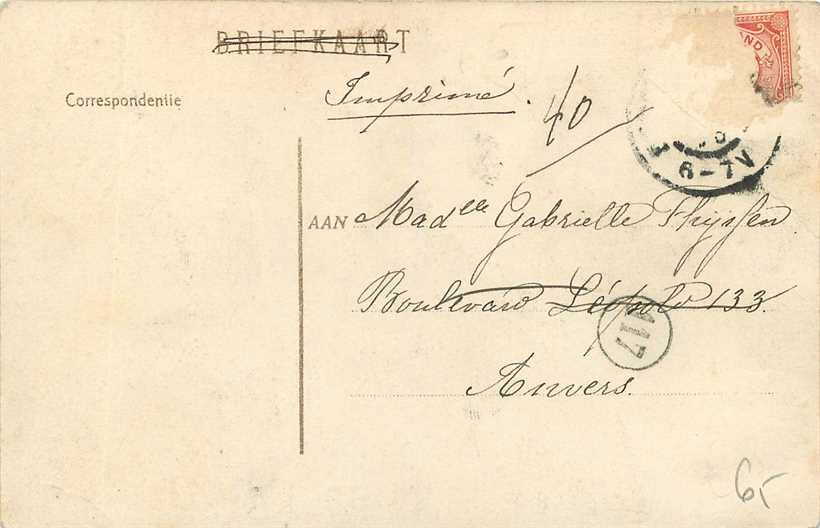 BRIEFKAART
Correspondentie
Imprimé.
40
AND
6-7V
AAN Madelle Gabrielle Thyssen
Boulevard Léopold 133.
117
Anvers.
65